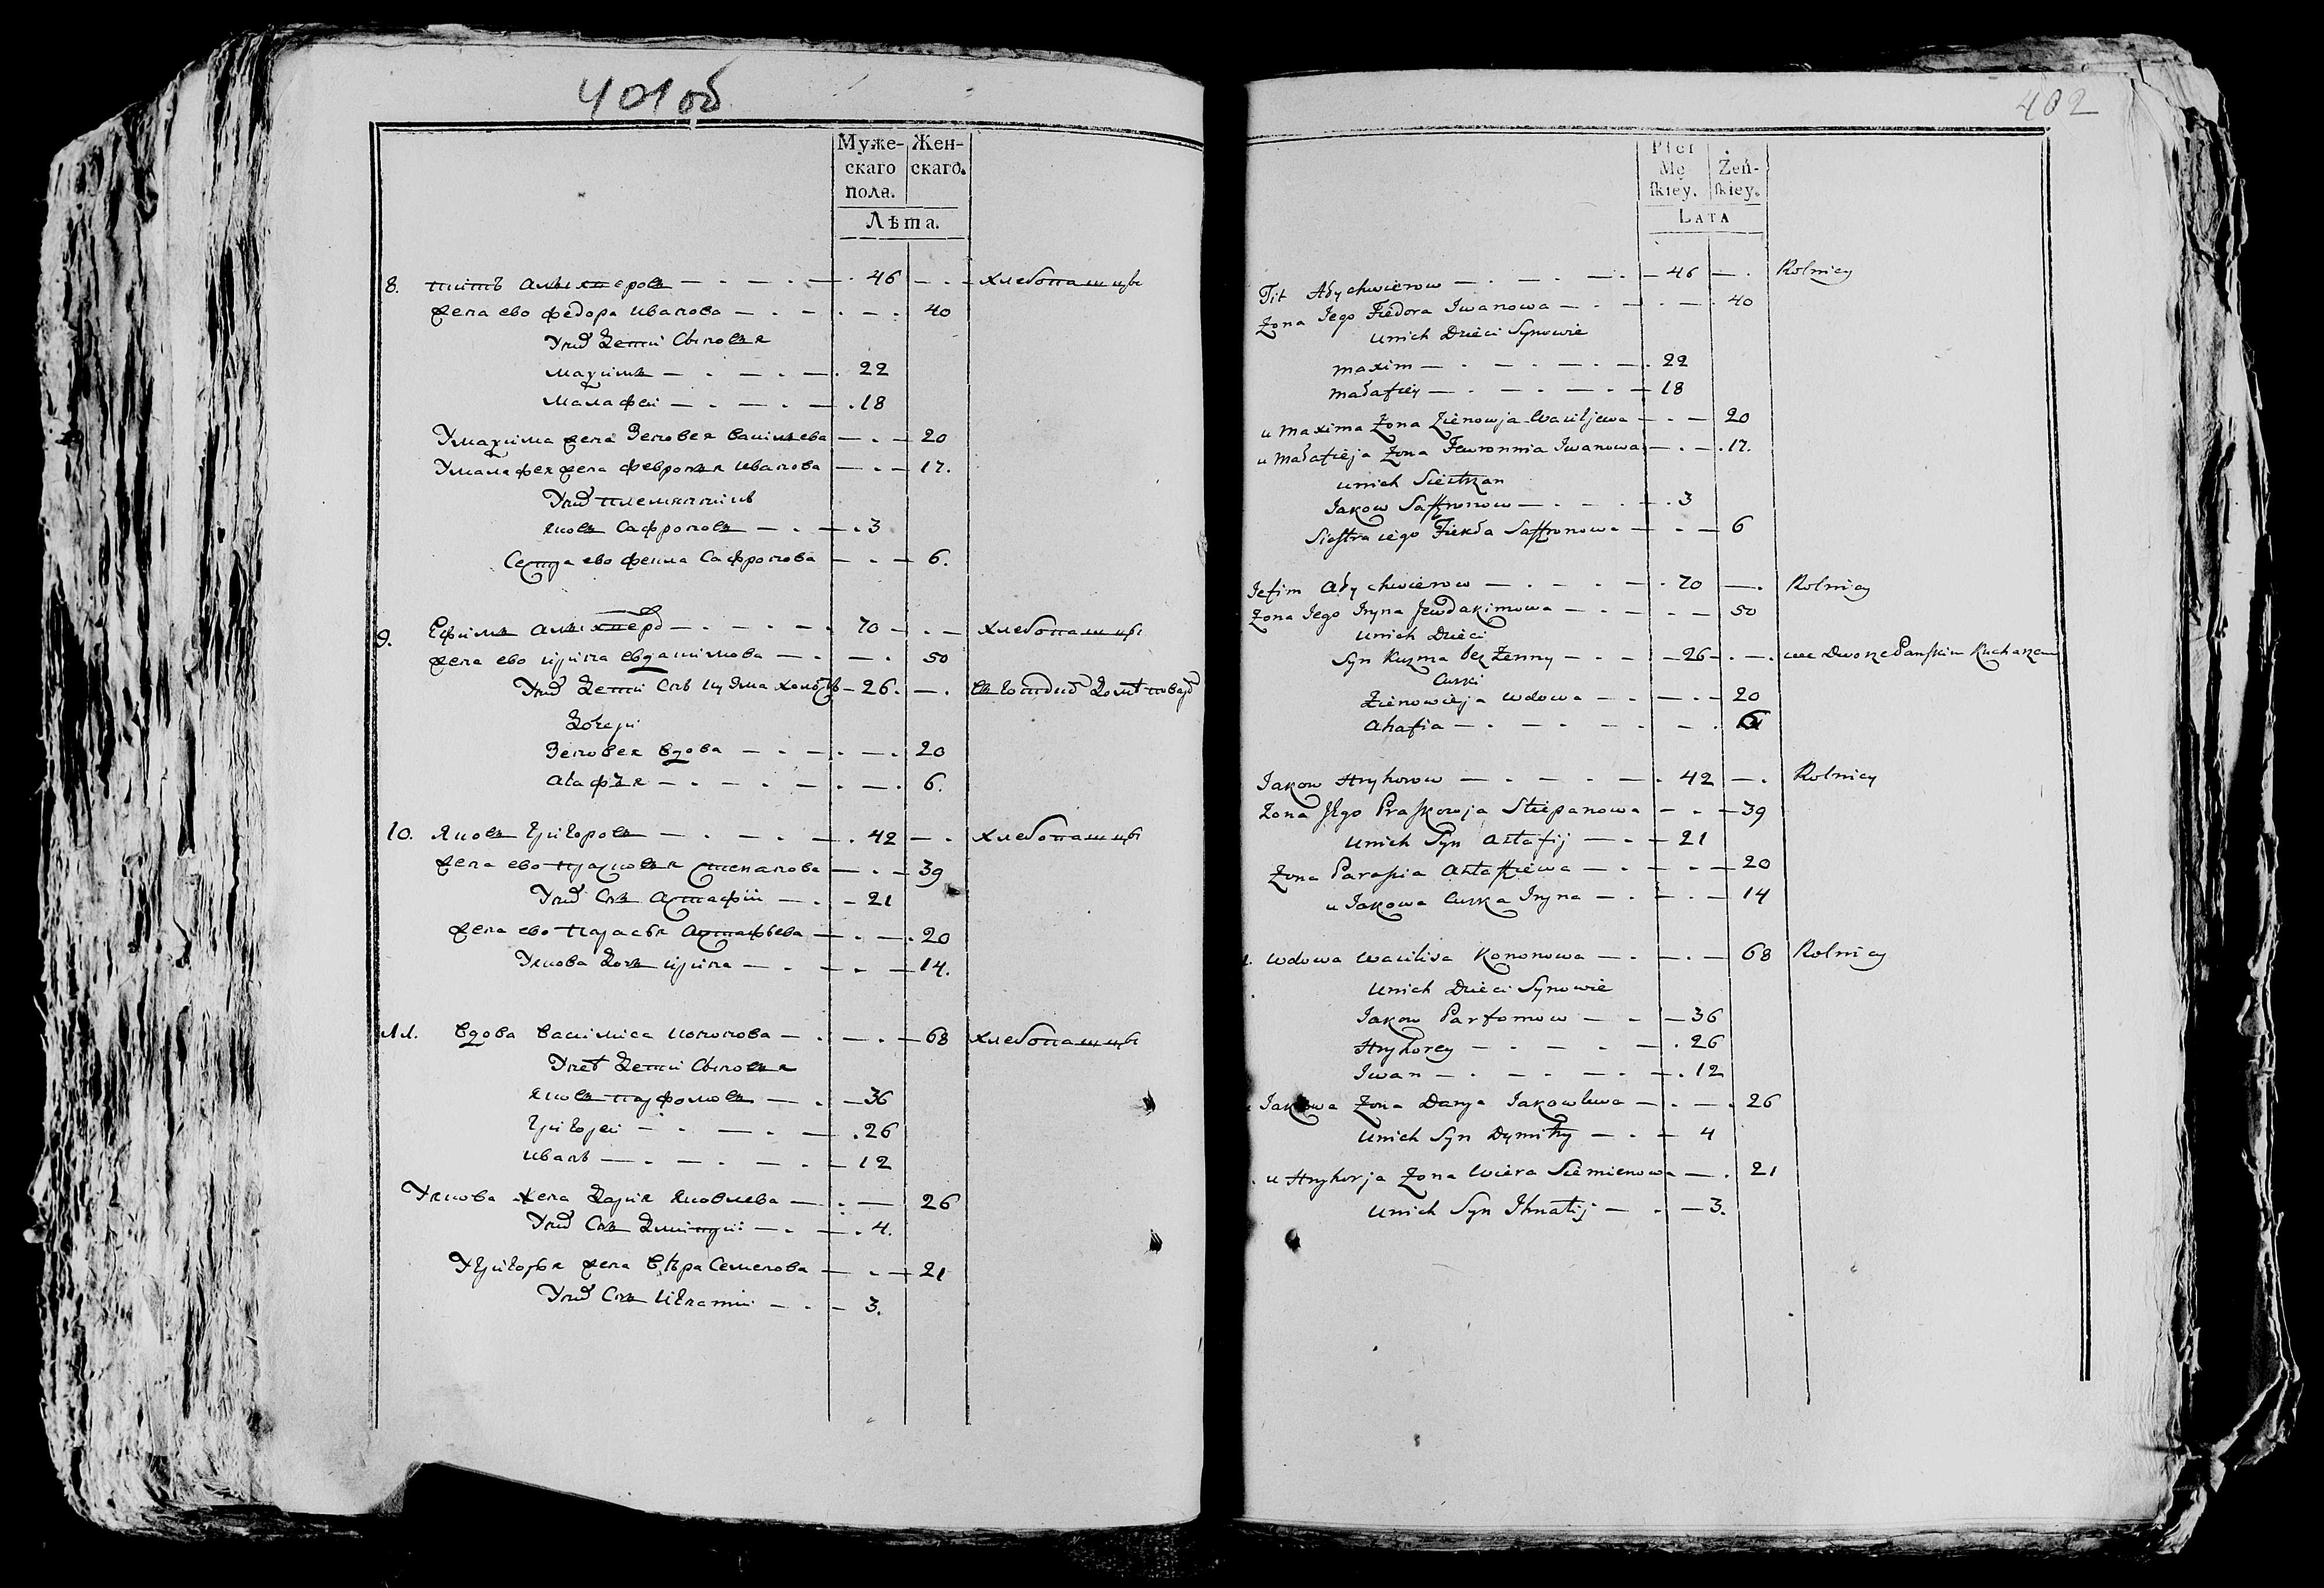 401 об
Муже-
скаго
пола.
Жен-
скаго.
Лѣта.
8. титъ — 46 — хлебопашцы
жена ево федора иванова — 40
У них дети Сыновья
махимъ — 22
малафеи — 18
У махима жена Зеновея васильева — 20
У малафея жена февронья иванова — 17.
У них племянникъ
яковъ Сафроновъ — 3
Сестра ево фекла Сафронова — 6.
9. Ефимъ — 70 — хлебопашцы
жена ево ирина евдакимова — 50
У них детиСнъ кузма холостъ — 26. —
дочери
Зеновея вдова — 20
агафья — 6.
10. Яковъ григоровъ — 42 — хлебопашцы
жена ево прасковья степанова — 39
У них Снъ астафии — 21
жена ево парасья астафьева — 20
У якова дочь ирина — 14.
11. вдова василиса кононова — 68 хлебопашцы
У нее дети Сыновья
яковъ парфомовъ — 36
григореи — 26
иванъ — 12
У якова жена дарья яковлева — 26
У них Снъ дмитреи — 4.
У григорья жена вѣра Семенова — 21
У них Снъ игнатии — 3.
402
Płci
Mę
ſkiey.
Żeń-
ſkiey.
LATA
Tit Ałychwierow — 46 — Rolnicy
Zona Jego Fiedora Iwanowa — 40
u nich Dzieci Synowie
maxim — 22
małafiey — 18
u maxima Zona Zienowja Wasiljewa — 20
u małafieja Zona Fewronnia Iwanowa — 17.
u nich Siestrzan
Jakow Saffronow — 3
Siostra iego Fiekła Saffronowa — 6
Jefim Ałychwierow — 70 — Rolnicy
Zona Jego Iryna Jewdakimowa — 50
u nich Dzieci
Syn Kuzma bez Zenny — 26 — we Dworze Pańskim Kucharzem
Curki
Zienowieja wdowa — 20
Ahafia — 6
Jakow Hryhorow — 42 — Rolnicy
Zona Jego Praskowja Stiepanowa — 39
u nich Syn Astafij — 21
Zona Parasia Astaffiewa — 20
u Jakowa Curka Iryna — 14
wdowa wasilisa Kononowa — 68 Rolnicy
u nich Dzieci Synowie
Jakow Parfomow — 36
Hryhorey — 26
Iwan — 12
Jakowa Zona Darya Jakowlewa — 26
u nich Syn Dymitry — 4
u Hryhorja Zona Wiera Siemienowa — 21
u nich Syn Ihnatij — 3.